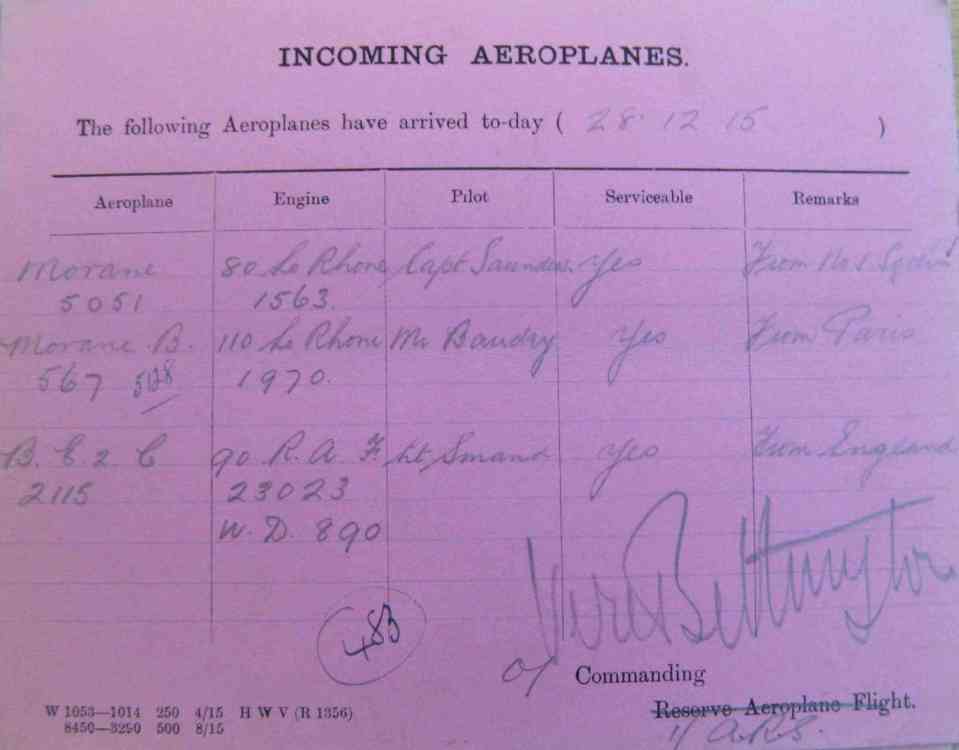 INCOMING AEROPLANES.
The following Aeroplanes have arrived to-day ( 28. 12 15 )
Aeroplane Engine Pilot Serviceable Remarks
Morane 80 Le Rhone Capt Saunders. Yes From No 1 Sqdn
5051 1563.
Morane B. 110 Le Rhone Mr Baudry Yes From Paris
567 5128 1970.
B. E. 2. C 90 R. A. F. Lt, Smand Yes From England
2115 23023
W. D. 890
Vere Bettington
483
Commanding
W 1053—1014 250 4/15 H W V (R 1356)
Reserve Aeroplane Flight.
8450—3250 500 8/15
A.R.S.